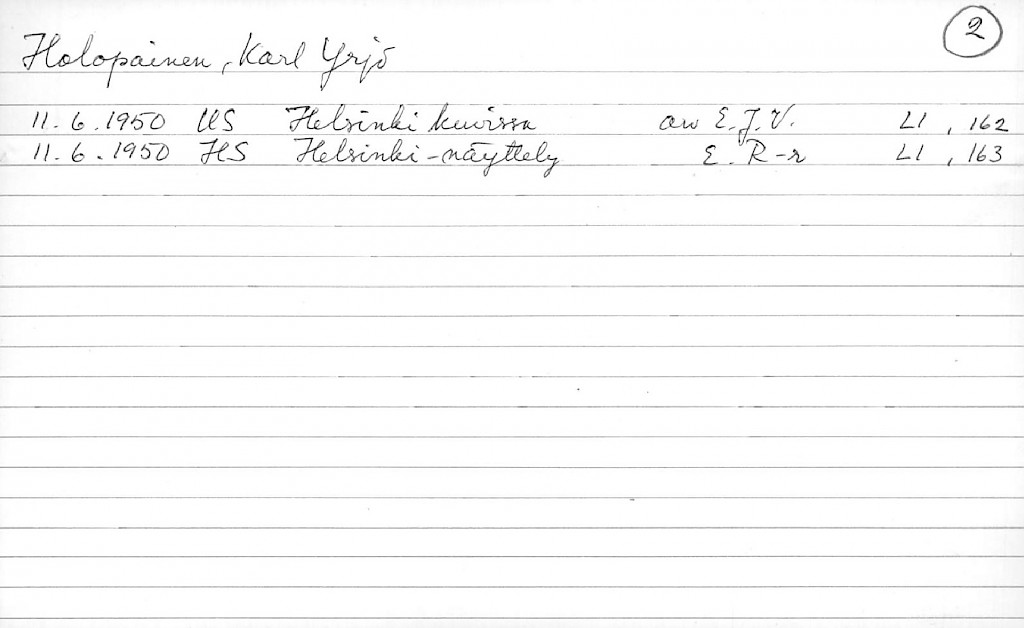 2
Holopainen, Karl Yrjö
11.6.1950 US Helsinki kuvissa arv E.J.V. LI, 162
11.6.1950 HS Helsinki-näyttely E. R-r LI, 163